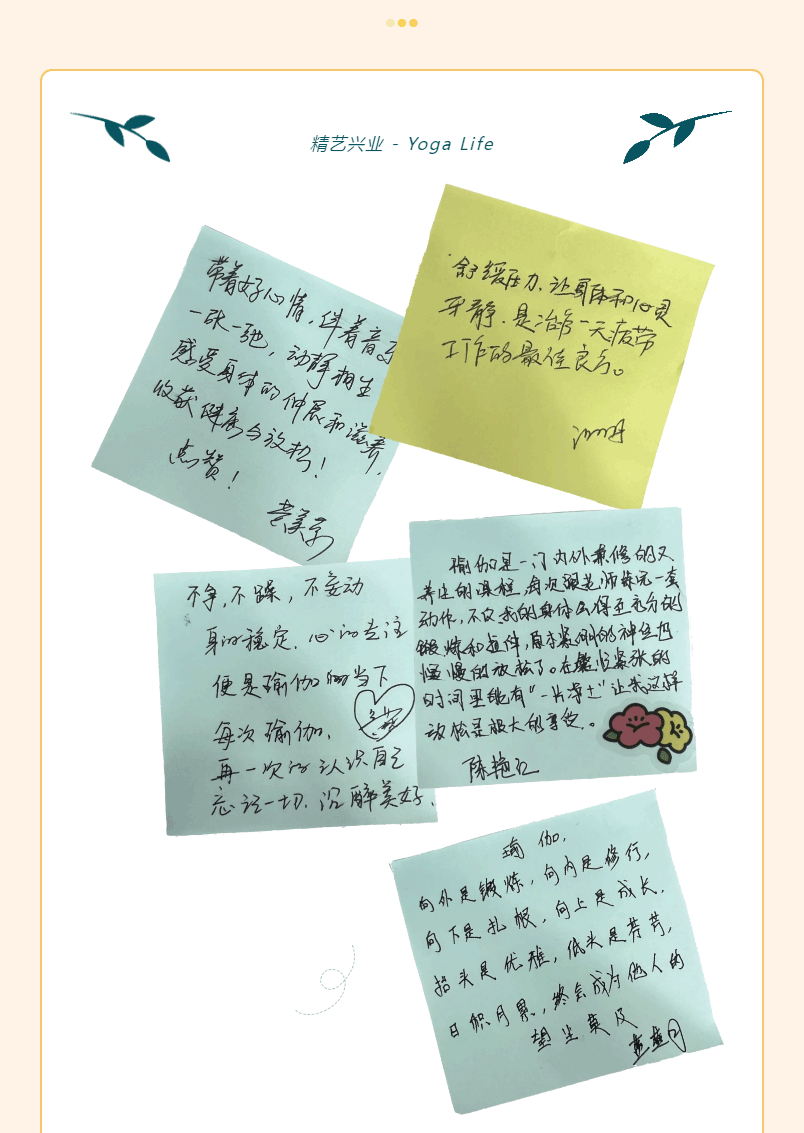 精艺兴业 - Yoga Life
带着好心情，伴着音乐
一张一弛，动静相生
感受身体的伸展和滋养，
收获健康与放松！
点赞！
舒缓压力，让身体和心灵
平静，是治愈一天疲劳
工作的最佳良方。
不争，不躁，不妄动
身的稳定，心的专注
便是瑜伽的当下
每次瑜伽，
再一次的认识自己
忘记一切，沉醉美好.
瑜伽是一门内外兼修的又
养生的课程，每次跟老师练完一套
动作，不仅我的身体会得至充分的
锻炼和拉伸，原本紧绷的神经也
慢慢的放松了。在繁忙紧张的
时间里能有“一片净土”让我这样
放松是很大的享受。
陈艳红
瑜 伽，
向外是锻炼，向内是修行，
向下是扎根，向上是成长，
抬头是优雅，低头是芬芳，
日积月累，终会成为他人的
望尘莫及